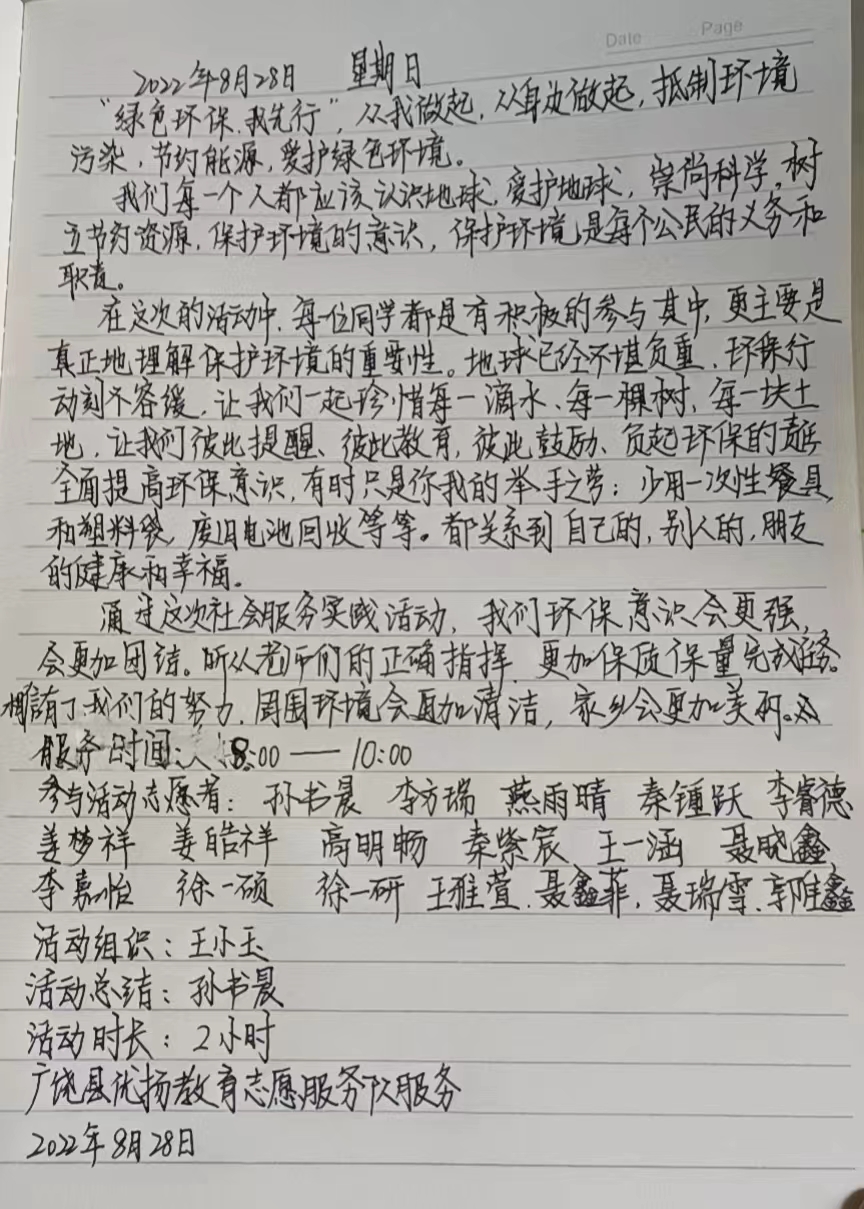 Date Page
2022年8月28日 星期日
“绿色环保,我先行”,从我做起,从身边做起,抵制环境
污染,节约能源,爱护绿色环境。
我们每一个人都应该认识地球,爱护地球,崇尚科学,树
立节约资源,保护环境的意识,保护环境是每个公民的义务和
职责。
在这次的活动中,每位同学都是有积极的参与其中,更主要是
真正地理解保护环境的重要性。地球已经不堪负重、环保行
动刻不容缓,让我们一起珍惜每一滴水、每一棵树、每一块土
地,让我们彼此提醒、彼此教育,彼此鼓励、负起环保的责任
全面提高环保意识,有时只是你我的举手之劳:少用一次性餐具,
和塑料袋,废旧电池回收等等。都关系到自己的,别人的,朋友
的健康和幸福。
通过这次社会服务实践活动,我们环保意识会更强,
会更加团结。听从老师们的正确指挥,更加保质保量完成任务。
相信有了我们的努力,周围环境会更加清洁,家乡会更加美丽。
服务时间: 8:00——10:00
参与活动志愿者: 孙书晨 李方瑞 燕雨晴 秦锺跃 李睿德
姜梦祥 姜皓祥 高明畅 秦紫宸、王一涵 聂晓鑫,
李嘉怡 徐一硕 徐一研 王雅萱、聂鑫菲,聂瑞雪、郭佳鑫
活动组织:王小玉
活动总结:孙书晨
活动时长:2小时
广饶县优扬教育志愿服务队服务
2022年8月28日